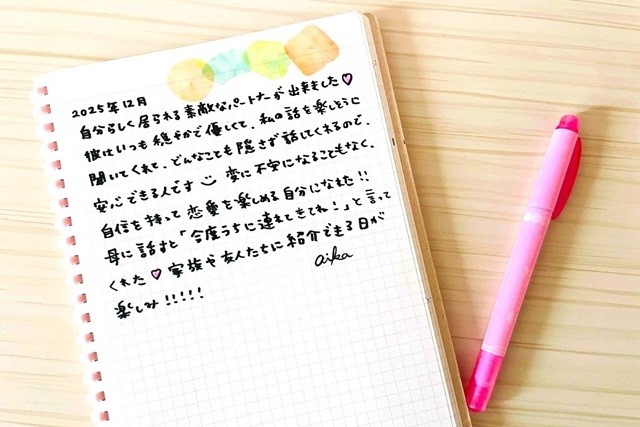 2025年12月
自分らしく居られる素敵なパートナーが出来ました♡
彼はいつも穏やかで優しくて、私の話を楽しそうに
聞いてくれて、どんなことも隠さず話してくれるので、
安心できる人です 変に不安になることもなく、
自信を持って恋愛を楽しめる自分になれた!!
母に話すと「今度うちに連れてきてね!」と言って
くれた♡家族や友人たちに紹介できる日が
楽しみ!!!!!
aika